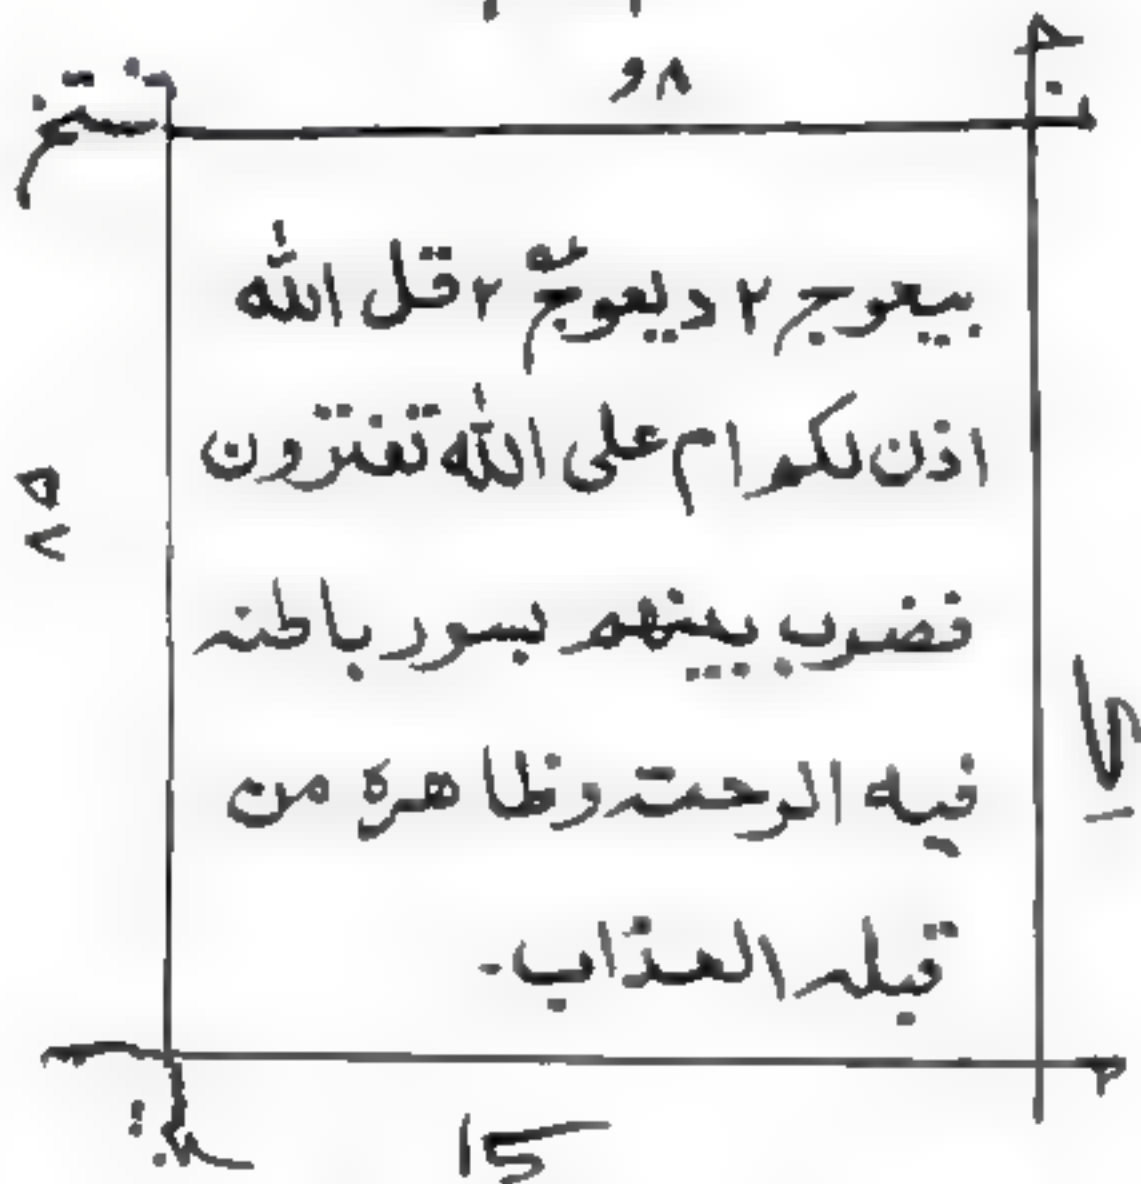 ٨ و
بيعوج ٢ ديعوج ٢ قل الله
اذن لكم ام على الله تفترون
فضرب بينهم بسور باطنه
فيه الرحمة وظاهره من
قبله العذاب.